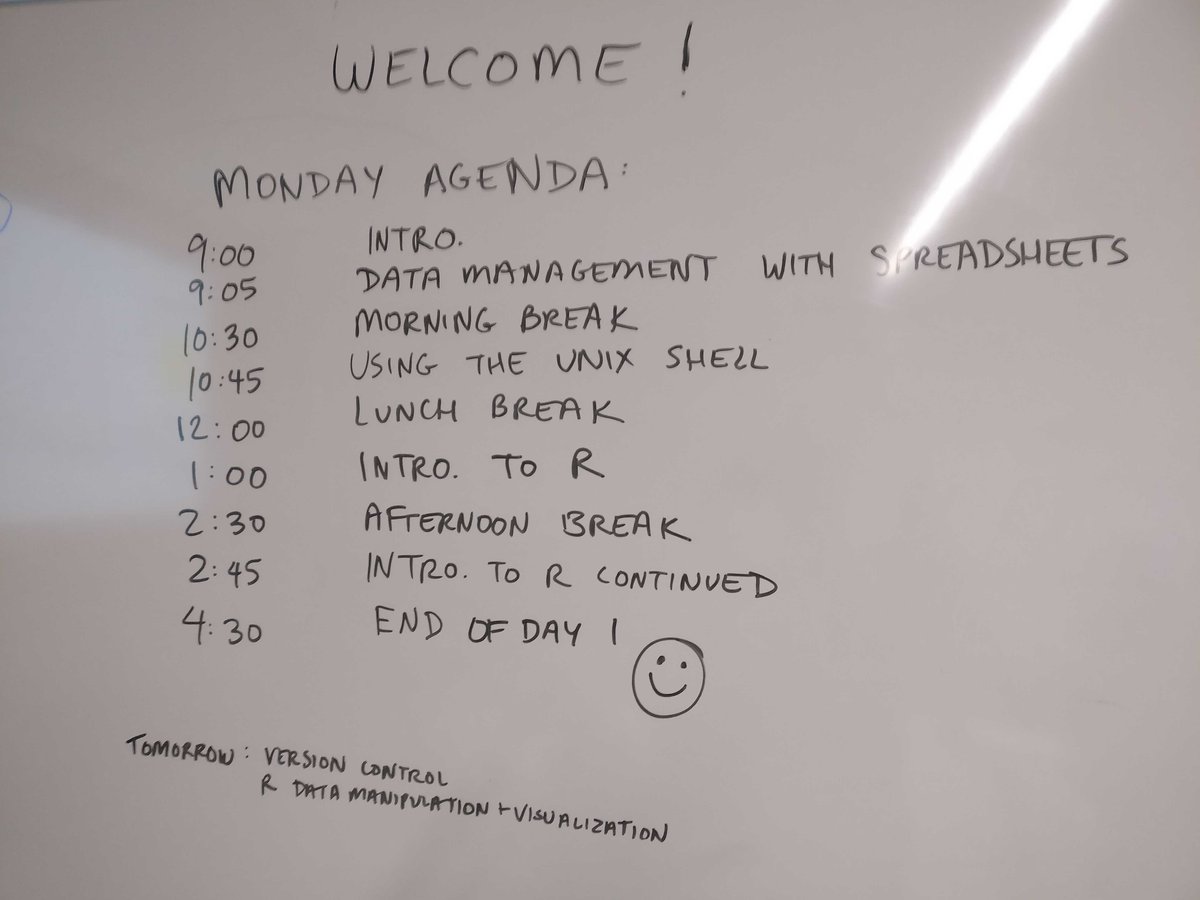 WELCOME!
MONDAY AGENDA:
9:00 INTRO.
9:05 DATA MANAGEMENT WITH SPREADSHEETS
10:30 MORNING BREAK
10:45 USING THE UNIX SHELL
12:00 LUNCH BREAK
1:00 INTRO. TO R
2:30 AFTERNOON BREAK
2:45 INTRO. TO R CONTINUED
4:30 END OF DAY 1
TOMORROW: VERSION CONTROL
R DATA MANIPULATION + VISUALIZATION